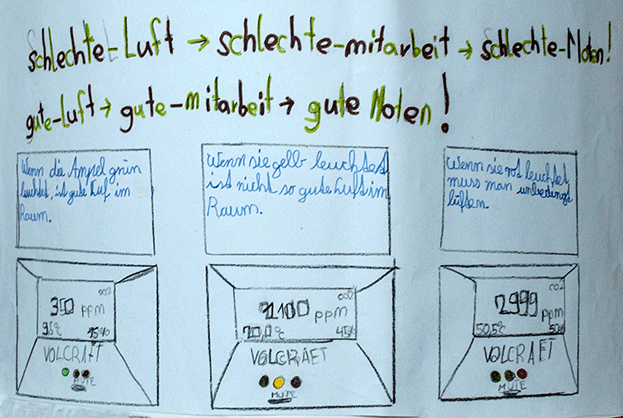 schlechte-Luft → schlechte-mitarbeit → schlechte-Noten!
gute-luft → gute-mitarbeit → gute Noten!
Wenn die Ampel grün
leuchtet, ist gute Luf im
Raum.
Wenn sie gelb leuchtet
ist nicht so gute Luft im
Raum.
Wenn sie rot leuchtet
muss man unbedingt
lüften.
CO2
350 ppm
VOLCRAFT
MUTE
CO2
1100 ppm
45%
VOLCRAFT
MUTE
CO2
2999 ppm
50,5°C
VOLCRAFT
MUTE